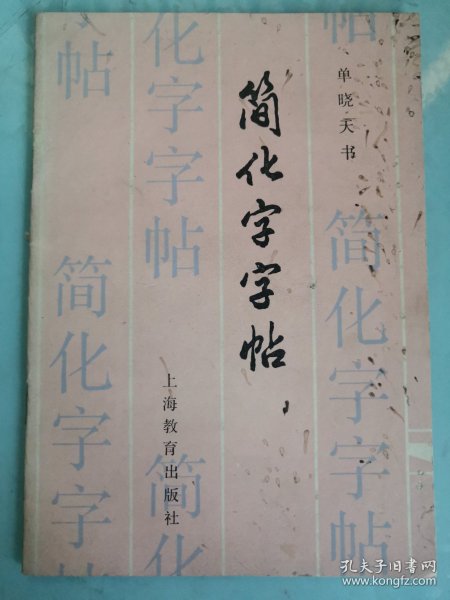 单晓天书
简化字字帖
上海教育出版社
帖
简化字字帖
化字字帖
简化
字帖
简化字字帖
孔夫子旧书网
www.kongfz.com